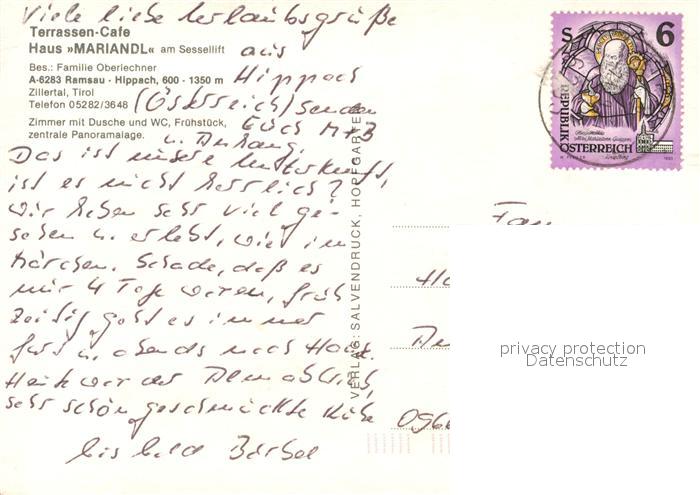 Viele liebe Urlaubsgrüße
Terrassen-Cafe
Haus »MARIANDL« am Sessellift
aus
Bes.: Familie Oberlechner
A-6283 Ramsau - Hippach, 600 - 1350 m
Hippach
Zillertal, Tirol
Telefon 05282/3648
(Österreich) senden
Zimmer mit Dusche und WC, Frühstück,
zentrale Panoramalage.
Euch M+B
u. Anhang.
Das ist unsere Unterkunft,
ist es nicht herrlich?
Wir haben sehr viel ge-
sehen u. erlebt, wie im
Märchen. Schade, daß es
nur 4 Tage waren, früh
zeitig geht es immer
fort u. abends nach Haus.
Heut war der Almabtrieb,
sehr schön geschmückte Kühe
bis bald Bärbel
VERLAG: SALVENDRUCK, HOPFGARTEN
S 6
REPUBLIK
ÖSTERREICH
Fam
096
privacy protection
Datenschutz